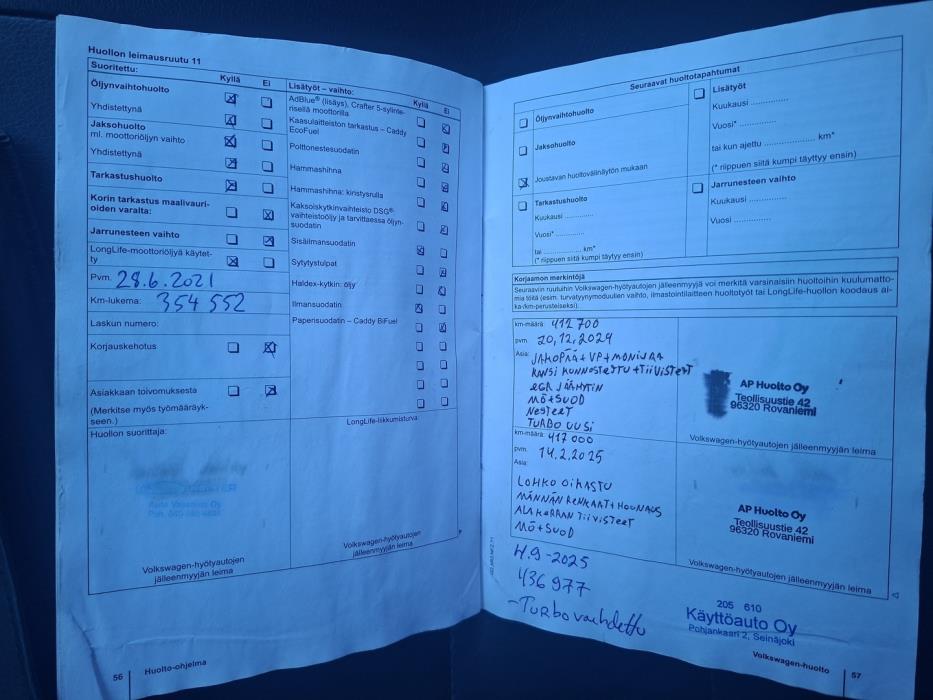 Huollon leimausruutu 11
Suoritettu:
Kyllä Ei
Öljynvaihtohuolto
Yhdistettynä
Jaksohuolto
ml. moottoriöljyn vaihto
Yhdistettynä
Tarkastushuolto
Korin tarkastus maalivauri-
oiden varalta:
Jarrunesteen vaihto
LongLife-moottoriöljyä käytet-
ty
Pvm. 28.6.2021
Km-lukema: 354 552
Laskun numero:
Korjauskehotus
Asiakkaan toivomuksesta
(Merkitse myös työmääräyk-
seen.)
Huollon suorittaja:
Volkswagen-hyötyautojen
jälleenmyyjän leima
Lisätyöt – vaihto:
Kyllä Ei
AdBlue® (lisäys), Crafter 5-sylinte-
risellä moottorilla
Kaasulaitteiston tarkastus – Caddy
EcoFuel
Polttonestesuodatin
Hammashihna
Hammashihna: kiristysrulla
Kaksoiskytkinvaihteisto DSG®-
vaihteistoöljy ja tarvittaessa öljyn-
suodatin
Sisäilmansuodatin
Sytytystulpat
Haldex-kytkin: öljy
Ilmansuodatin
Paperisuodatin – Caddy BiFuel
LongLife-liikkumisturva:
Volkswagen-hyötyautojen
jälleenmyyjän leima
56 Huolto-ohjelma
Seuraavat huoltotapahtumat
Öljynvaihtohuolto
Jaksohuolto
Joustavan huoltovälinäytön mukaan
Tarkastushuolto
Kuukausi .............
Vuosi* .............
tai ............. km*
(* riippuen siitä kumpi täyttyy ensin)
Lisätyöt
Kuukausi .............
Vuosi* .............
tai kun ajettu .................. km*
(* riippuen siitä kumpi täyttyy ensin)
Jarrunesteen vaihto
Kuukausi .............
Vuosi .............
Korjaamon merkintöjä
Seuraaviin ruutuihin Volkswagen-hyötyautojen jälleenmyyjä voi merkitä varsinaisiin huoltoihin kuulumatto-
mia töitä (esim. turvatyynymoduulien vaihto, ilmastointilaitteen huoltotyöt tai LongLife-huollon koodaus ai-
ka-/km-perusteiseksi).
km-määrä: 412 700
pvm. 20.12.2024
Asia: JAKOPÄÄ + VP + MONIURA
KANSI KUNNOSTETTU + TiiVISTEET
EGR JÄÄHYTIN
MÖ + SUOD
NESTEET
TURBO UUSi
AP Huolto Oy
Teollisuustie 42
96320 Rovaniemi
Volkswagen-hyötyautojen jälleenmyyjän leima
km-määrä: 417 000
pvm. 14.2.2025
Asia:
LOHKO OIKASTU
MÄNNÄN RENKAAT + HOONAUS
ALAKERRAN TiiVISTEET
MÖ + SUOD
AP Huolto Oy
Teollisuustie 42
96320 Rovaniemi
Volkswagen-hyötyautojen jälleenmyyjän leima
4.9-2025
436 977
-Turbo vaihdettu
205 610
Käyttöauto Oy
Pohjankaari 2, Seinäjoki
Volkswagen-huolto 57